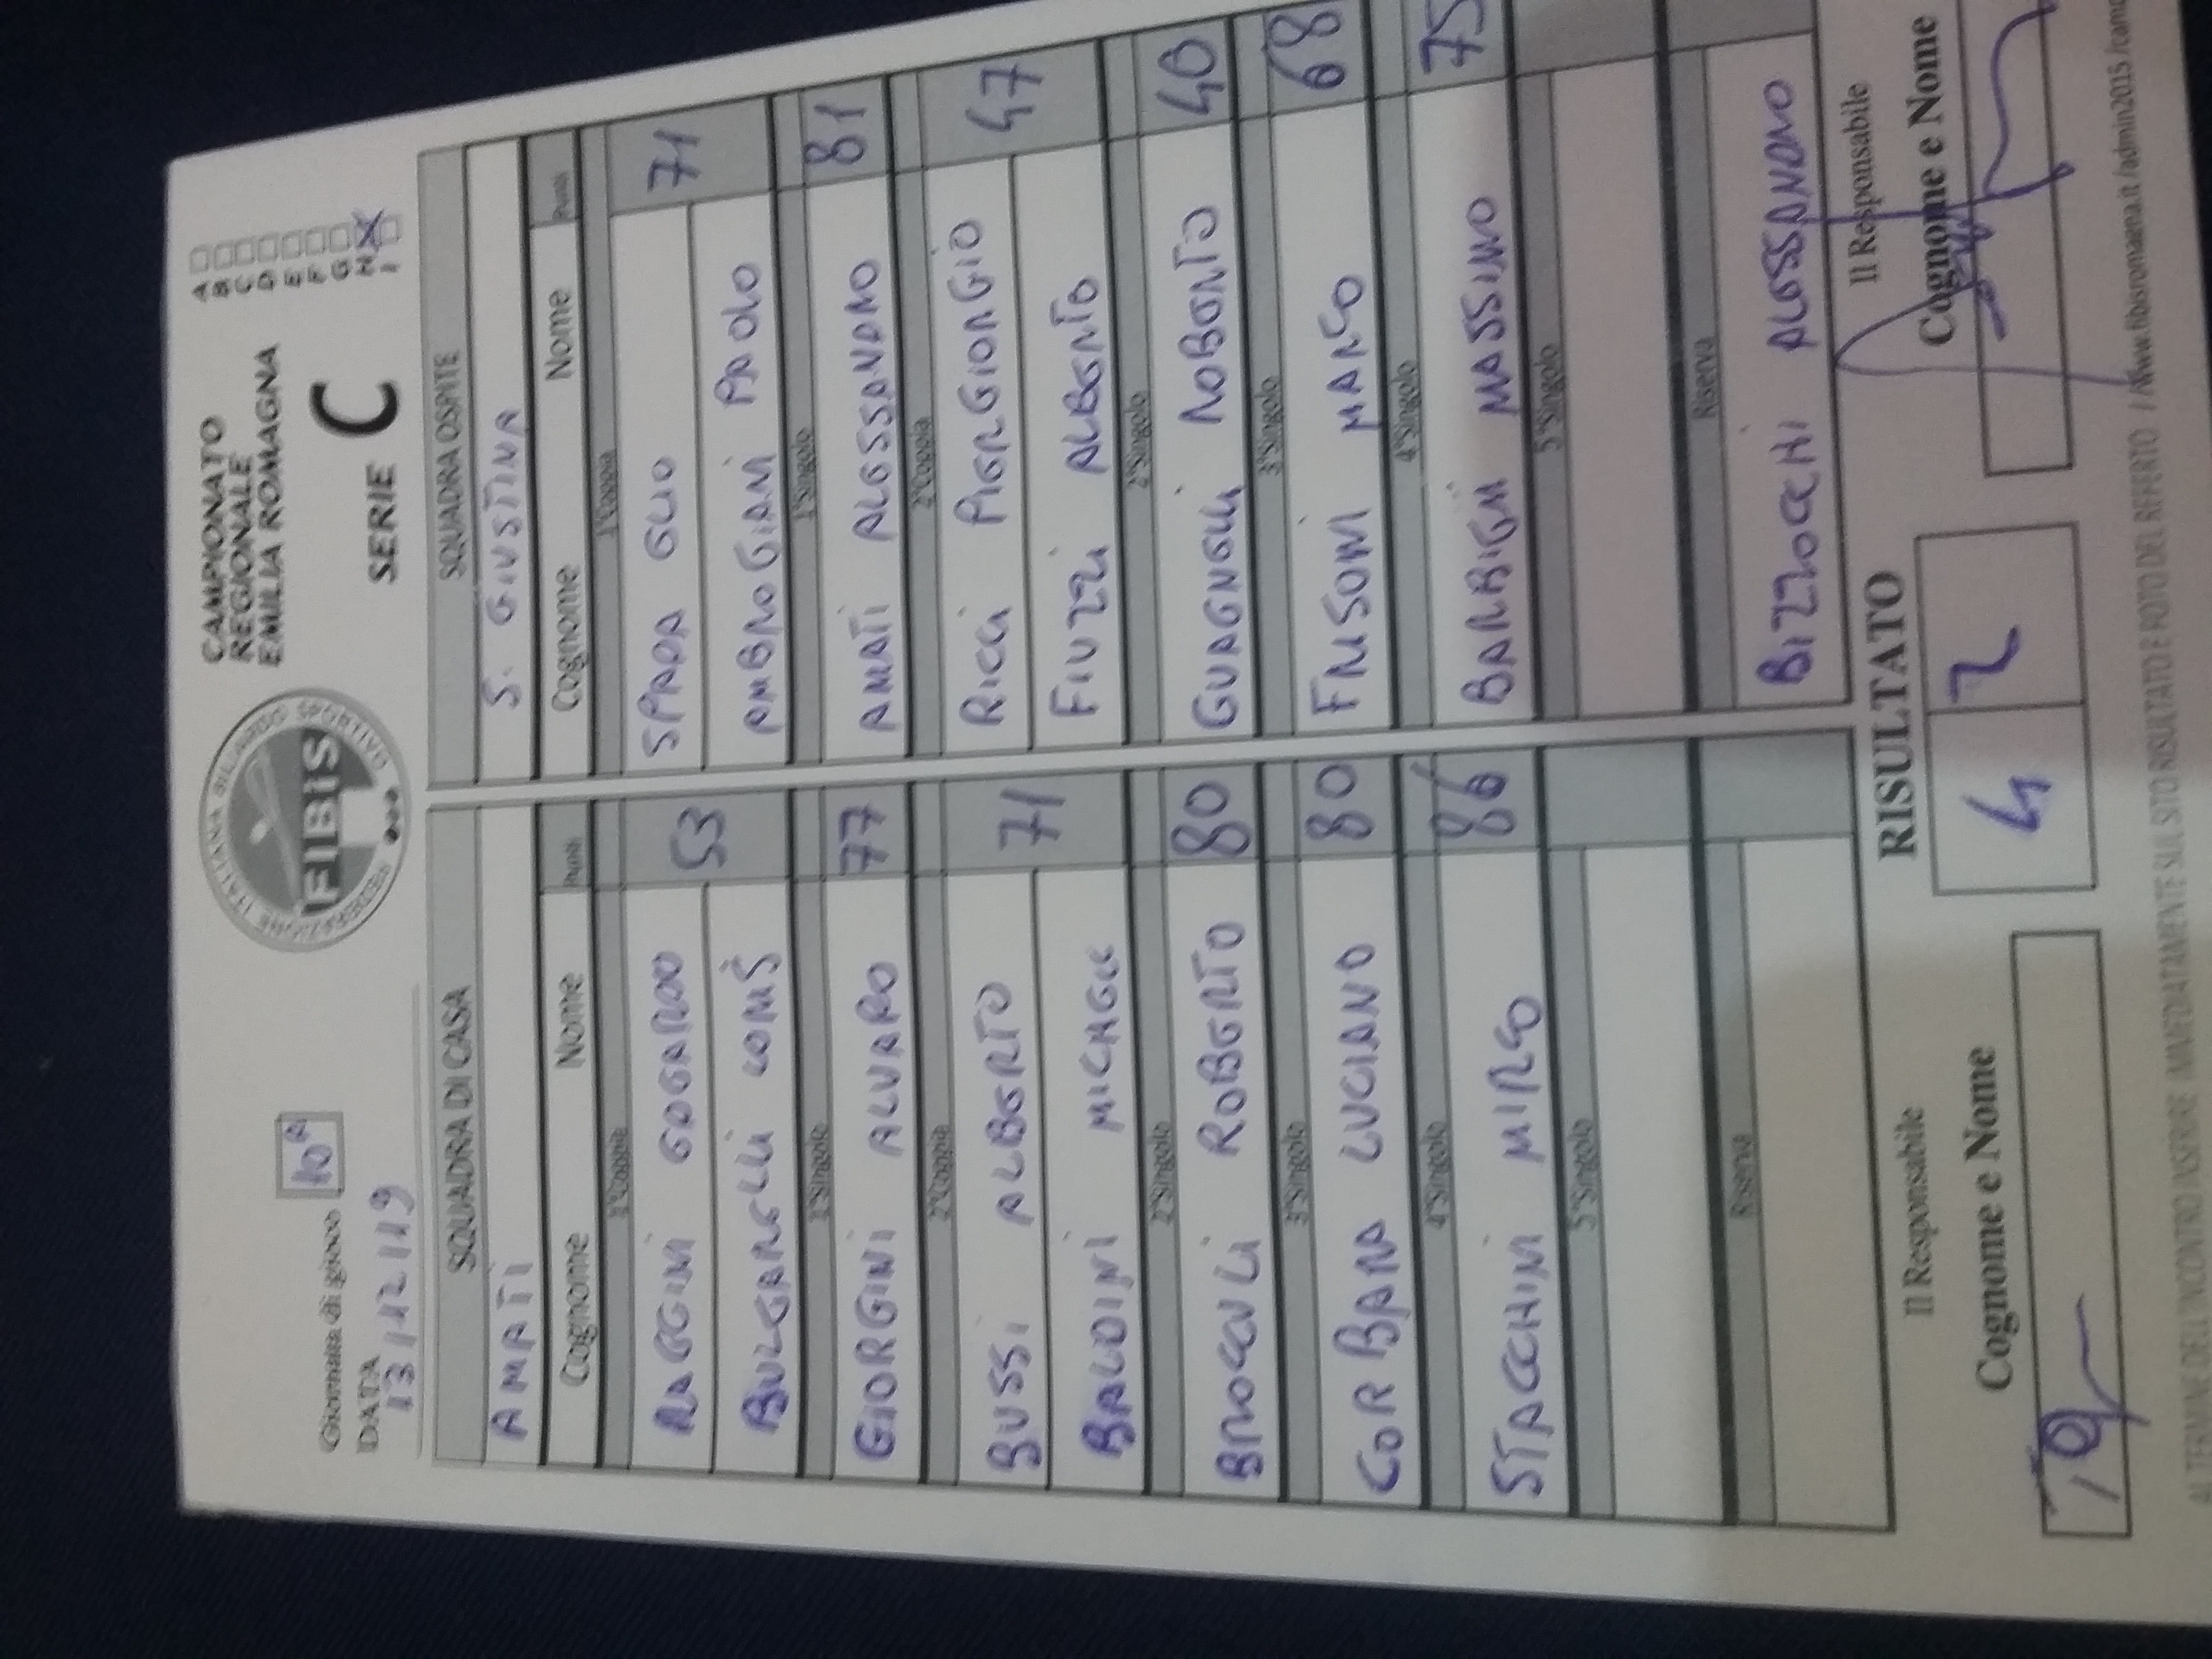 Giornata di gioco 10ª
DATA
13/12/19
FEDERAZIONE ITALIANA BILIARDO SPORTIVO
FIBIS
CAMPIONATO
REGIONALE
EMILIA ROMAGNA
SERIE C
A
B
C
D
E
F
G
H X
I
SQUADRA DI CASA SQUADRA OSPITE
AMATI S. GIUSTINA
Cognome Nome Punti Cognome Nome Punti
1°Coppia 1°Coppia
53 SPADA 71
BULGARELLI AMBROGIANI PAOLO
1°Singolo 1°Singolo
GIORGINI ALVARO 77 AMATI ALESSANDRO 81
2°Coppia 2°Coppia
BUSSI ALBERTO 71 RICCI PIERGIORGIO 47
BALDINI MICHELE FIUZZI ALBERTO
2°Singolo 2°Singolo
BROCCOLI ROBERTO 80 GUAGNELLI ROBERTO 40
3°Singolo 3°Singolo
CORBARA LUCIANO 80 FRISONI MARCO 68
4°Singolo 4°Singolo
STACCHINI MIRCO 86 MASSIMO 75
5°Singolo 5°Singolo
Riserva Riserva
BIZZOCCHI ALESSANDRO
Il Responsabile RISULTATO Il Responsabile
Cognome e Nome 4 2 Cognome e Nome
AL TERMINE DELL'INCONTRO INSERIRE IMMEDIATAMENTE SUL SITO RISULTATO E FOTO DEL REFERTO